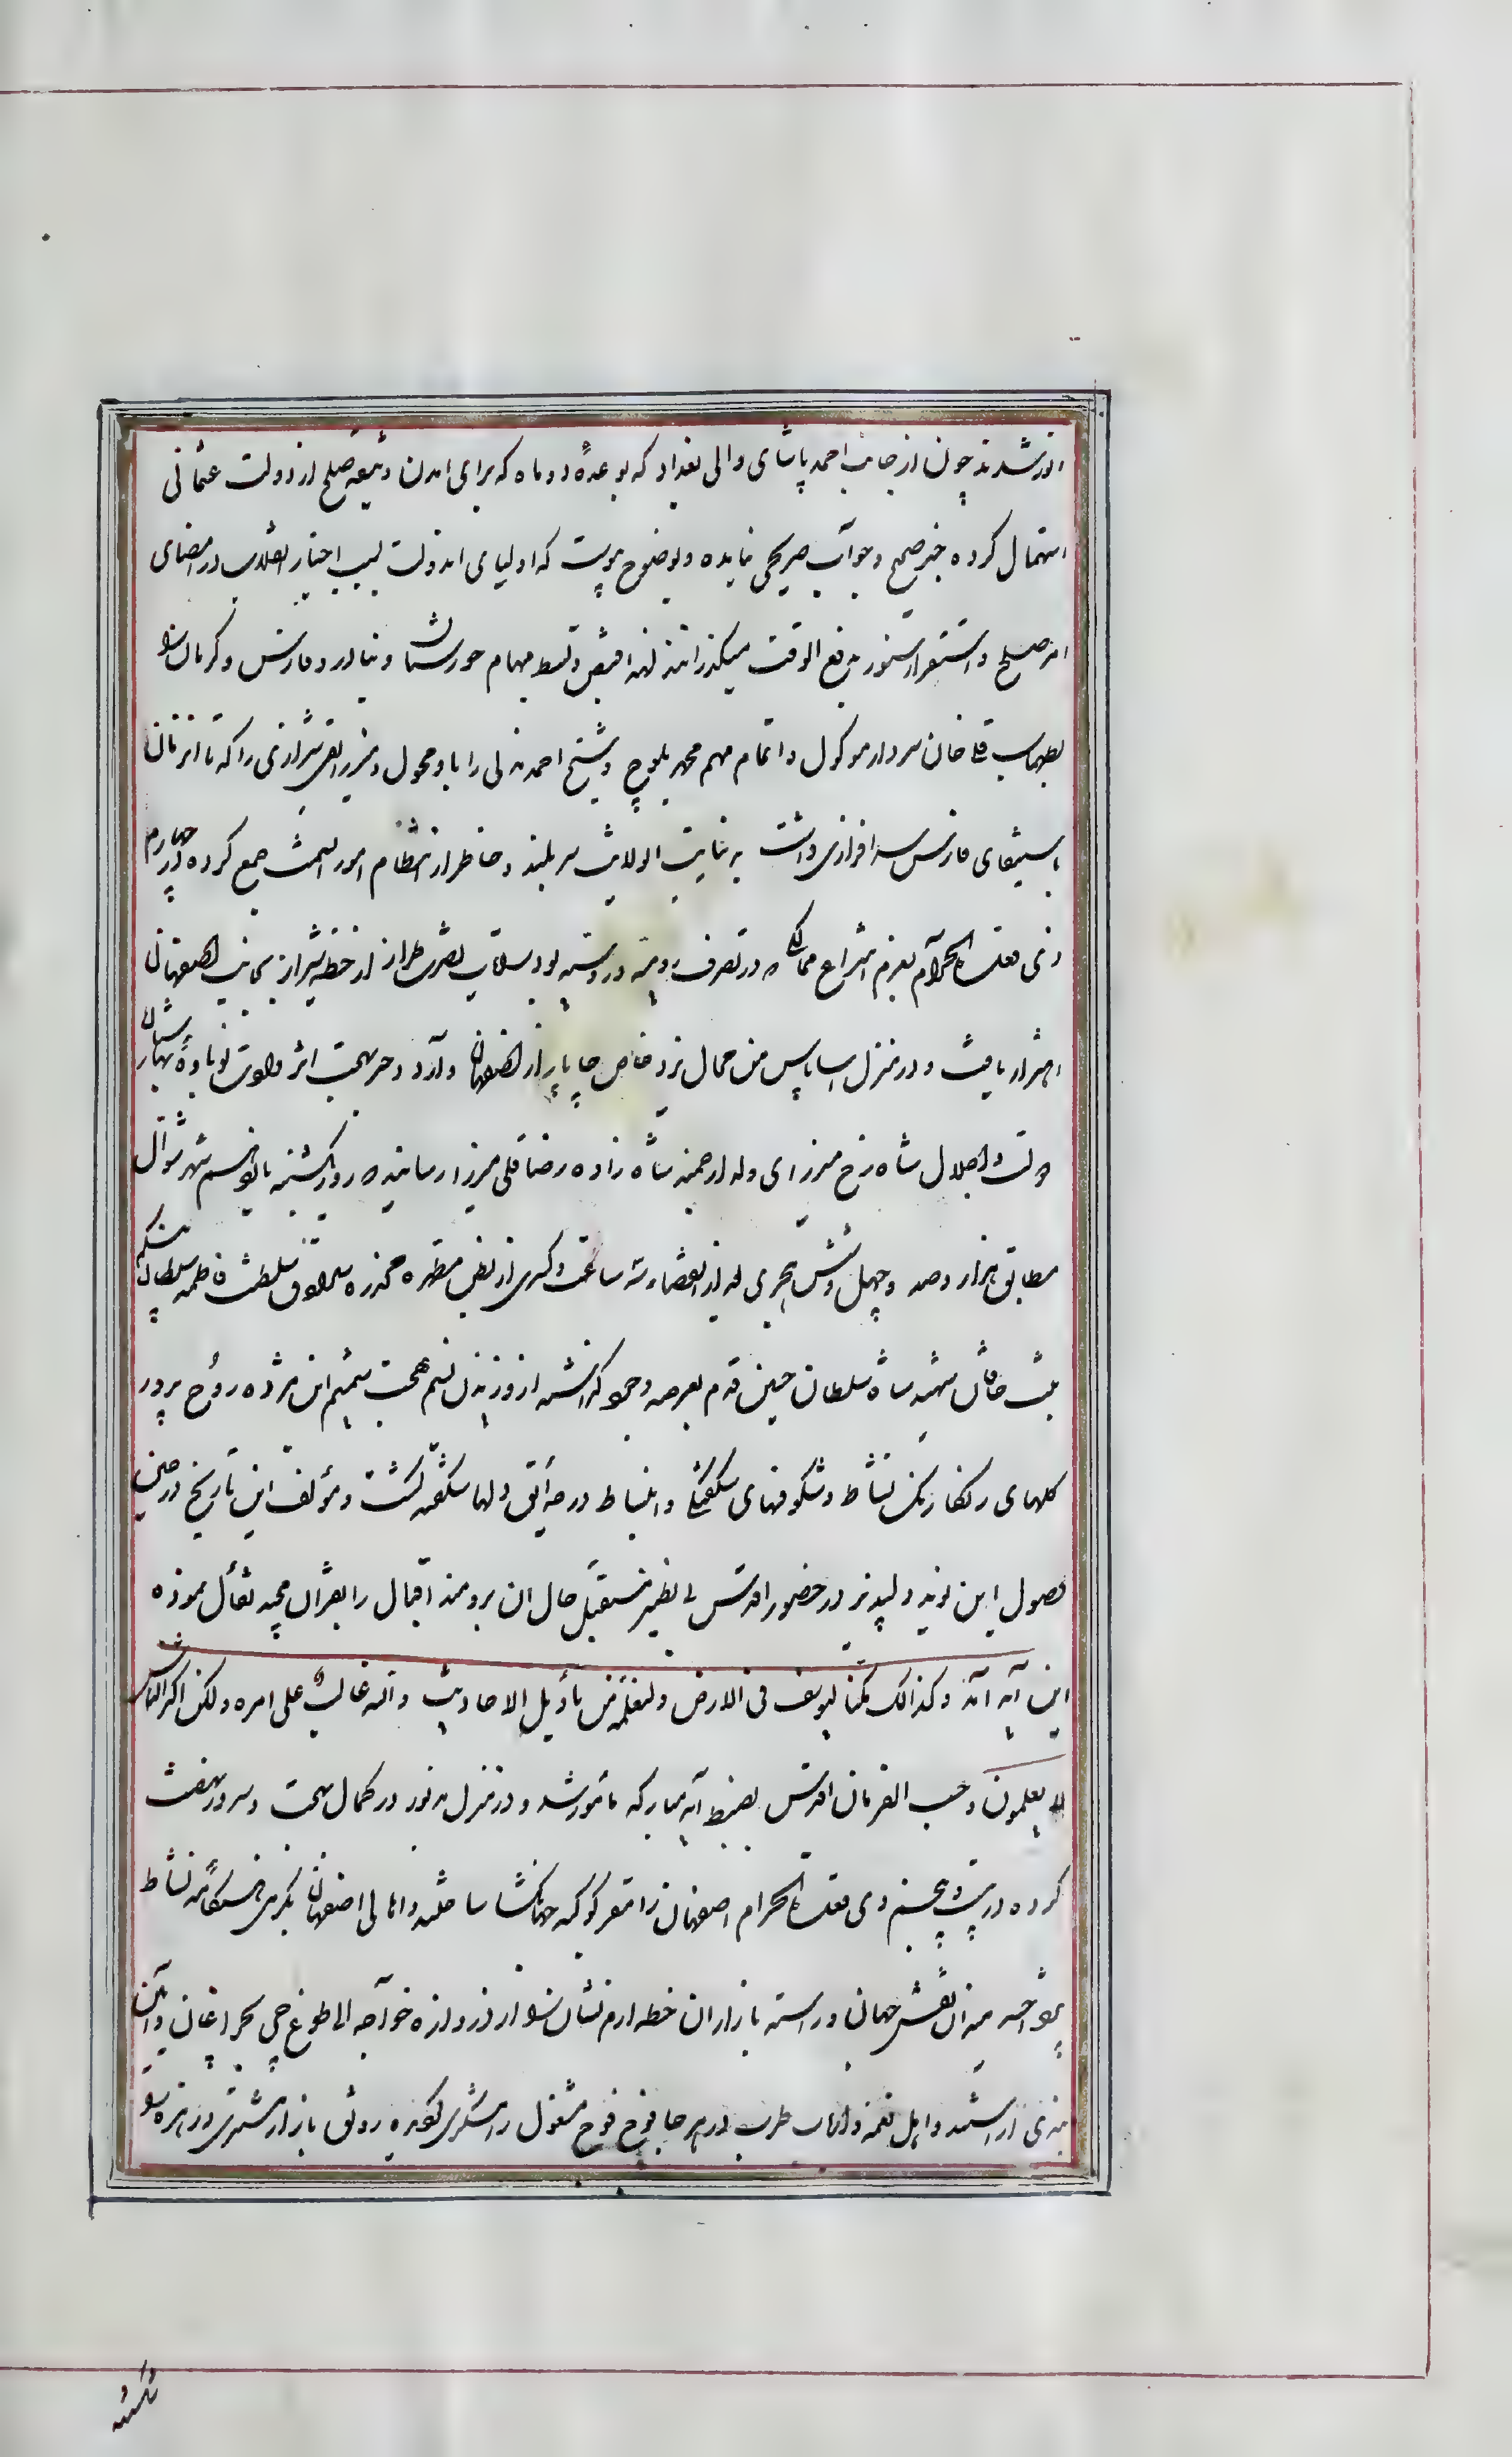 مأمور شدند چون از جانب احمد پاشای والی بغداد که بوعدهٔ دو ماه که برای امدن وثیقه صلح از دولت عثمانی
استمهال کرده خبر صحیح و جواب صریحی نیامده و بوضوح پیوست که اولیای اندولت بسبب اختیار انقلاب در امضای
امر صلح و استقرار سنور بدفع الوقت میگذرانند لهذا قبض و بسط مهام حورستان و بنادر و فارس و کرمان را
بطهماسب قلی خان سردار موکول و اتمام مهم محمد بلوچ و شیخ احمد مدنی را باو محول و میرزا تقی شیرازی را که تا انزمان
باستیفای فارس سرافرازی داشت به نیابت انولایت سربلند و خاطر از انتظام امور انسمت جمع کرده در چهارم
ذی قعده الحرام بعزم انتزاع ممالکی که در تصرف رومیه و روسیه بود برایات نصرت طراز از خطه شیراز بجانب اصفهان
اهتزاز یافت و در منزل اسپاس من محال یزد خاص چاپار از اصفهان وارد و خبر بهجت اثر ولادت نوباوهٔ بهارستان
دولت و اجلال شاه رخ میرزای ولد ارجمند شاه زاده رضا قلی میرزا رسانید که روز یکشنبه پانزدهم شهر شوال
مطابق هزار و صد و چهل و شش هجری بعد از انقضاء سه ساعت و کسری از بطن مطهره مخدره سرادق سلطنت فاطمه سلطان بیگم
بنت خاقان شهید شاه سلطان حسین قدم بعرصه وجود گذاشته از وزیدن نسیم بهجت شمیم این مژده روح پرور
گلهای رنگارنگ نشاط و شکوفهای شکفتگی و انبساط در حدایق دلها شکفته گشت و مؤلف این تاریخ در حین
حصول این نوید دلپذیر در حضور اقدس بی نظیر مستقبل حال ان برومند اقبال را بقران مجید تفأل نموده
این آیه آمد وکذالک مکنا لیوسف فی الارض ولنعلمه من تأویل الاحادیث والله غالب علی امره ولکن اکثر الناس
لا یعلمون و حسب الفرمان اقدس بضبط آیه مبارکه مأمور شد و در منزل مذبور در کمال بهجت و سرور نهضت
کرده در بیست و پنجم ذی قعده الحرام اصفهان را مقر کوکبه جهانکشا ساختند و اهالی اصفهان بگرمی هنگامه نشاط
پرداخته میدان نقش جهان و راسته بازار ان خطه ارم نشان را از دروازه خواجه الی طوغچی بچراغان و آیین
بندی اراستند و اهل نغمه و ارباب طرب در هر جا فوج فوج مشغول رامشگری گردیده رونق بازار مشتری و زهره را
شکسته